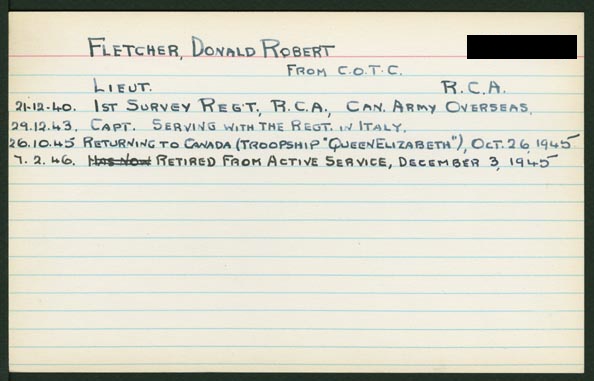 FLETCHER, DONALD ROBERT
FROM C.O.T.C.
LIEUT. R.C.A.
21-12-40. 1ST SURVEY REGT., R.C.A., CAN. ARMY OVERSEAS.
29.12.43. CAPT. SERVING WITH THE REGT. IN ITALY.
26.10.45 RETURNING TO CANADA (TROOPSHIP "QUEEN ELIZABETH"), OCT. 26, 1945
7. 2. 46. HAS NOW RETIRED FROM ACTIVE SERVICE, DECEMBER 3, 1945